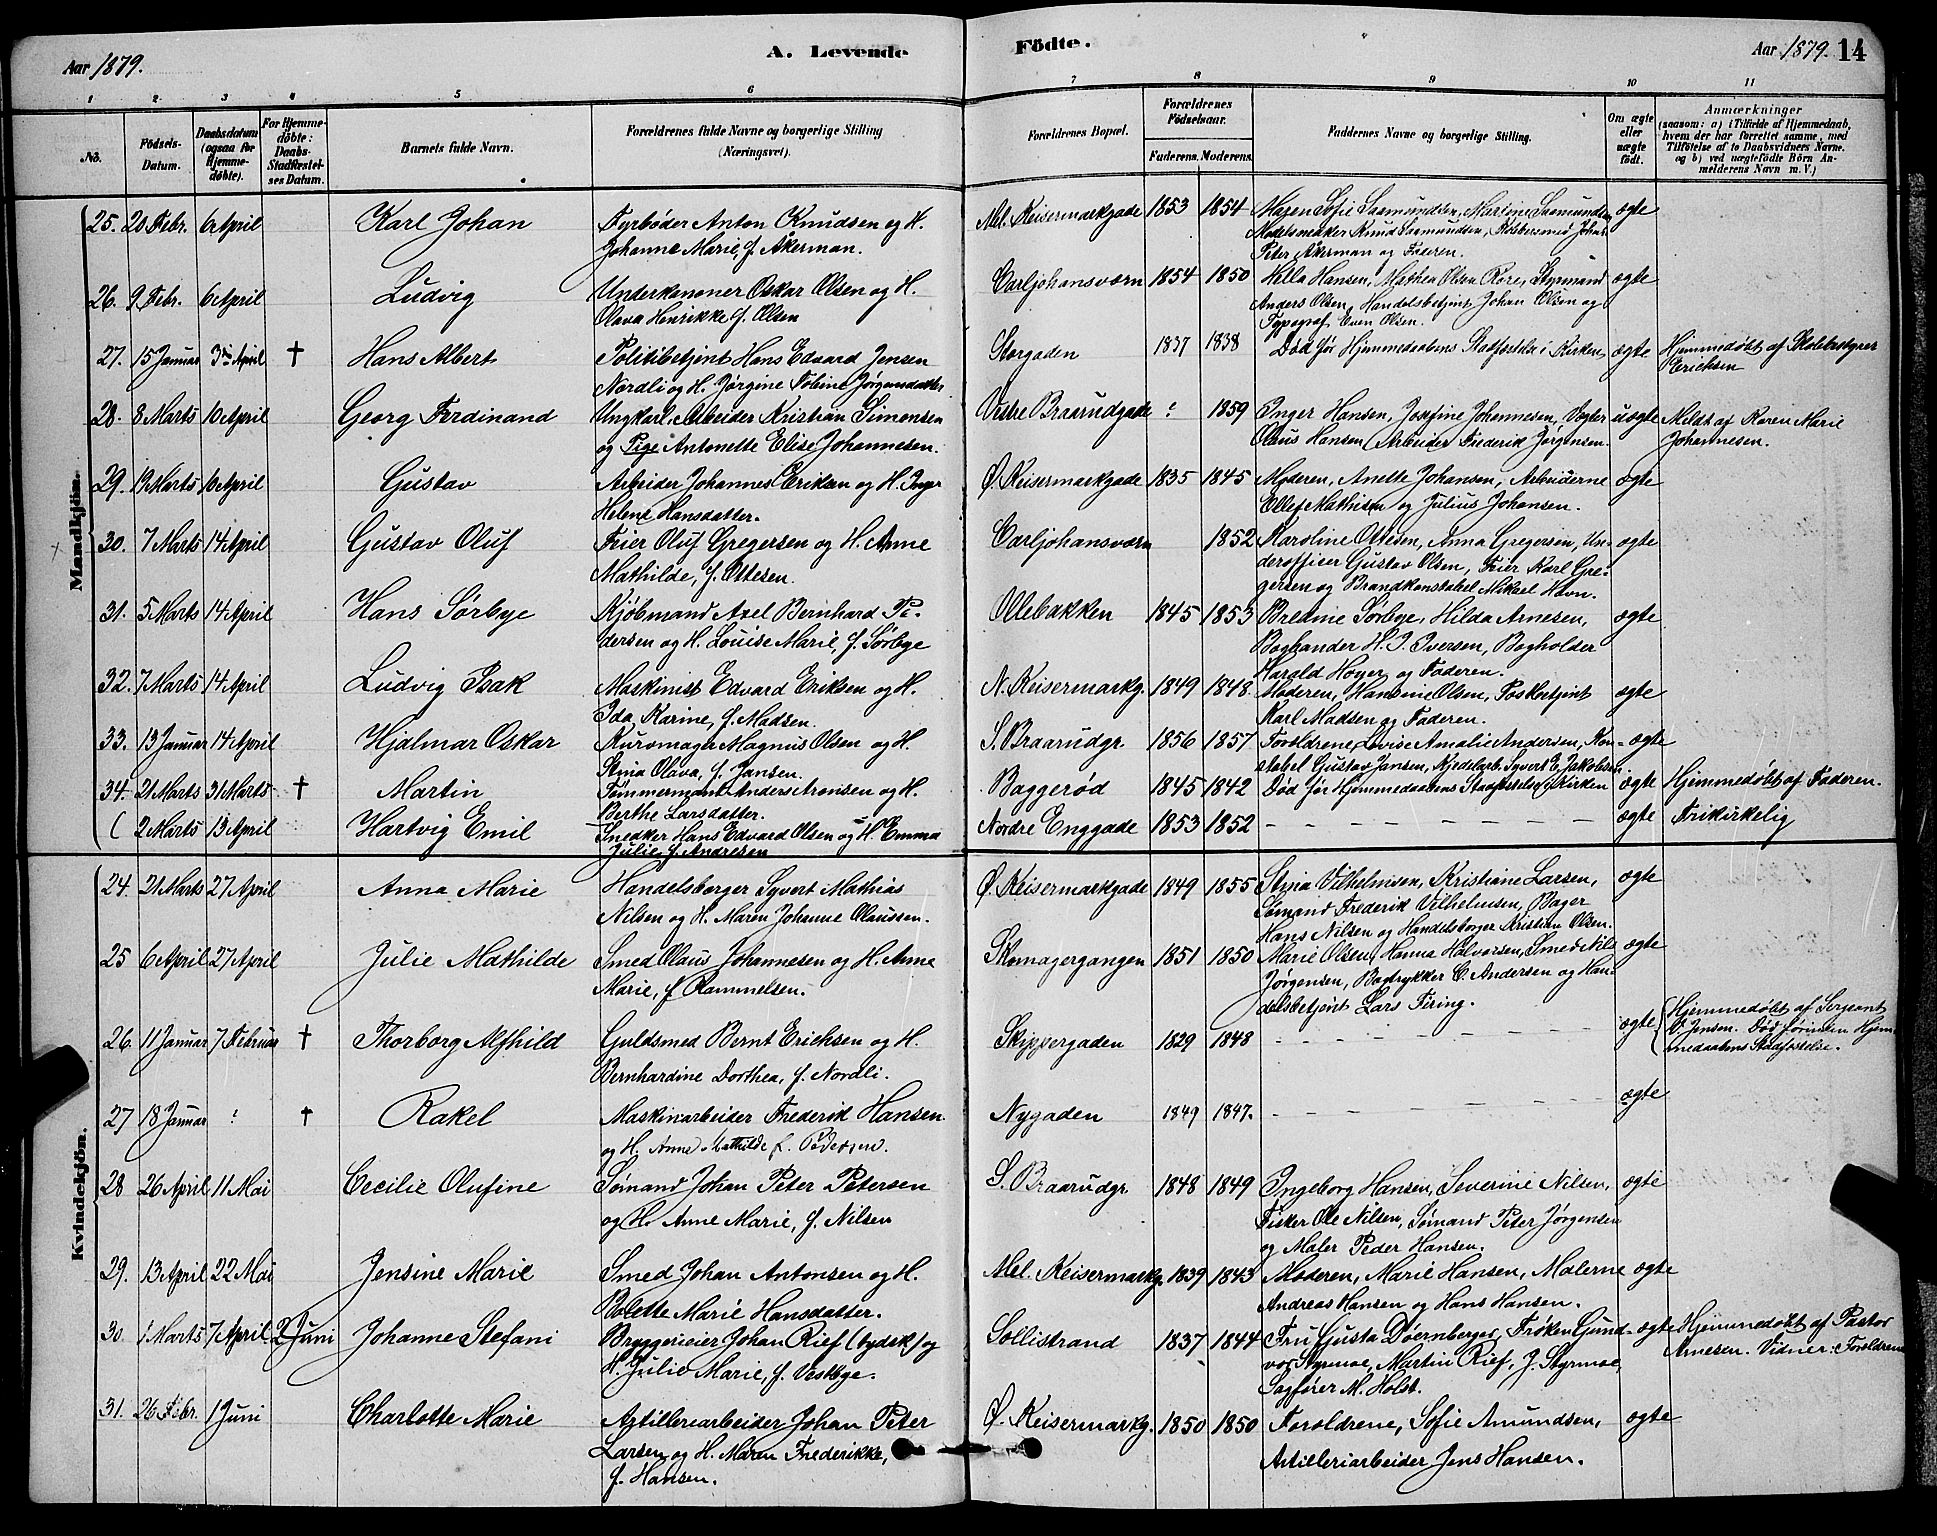 Aar 1879.
A. Levende
Födte.
Aar 1879. 14
1 2 3 4 5 6 7 8 9 10 11
No.
Födsels-
Datum.
Daabsdatum
(ogsaa for
Hjemme-
døbte).
For Hjemme-
døbte:
Daabs-
Stadfæstel-
ses Datum.
Barnets fulde Navn.
Forældrenes fulde Navne og borgerlige Stilling
(Næringsvei).
Forældrenes Bopæl.
Forældrenes
Födselsaar.
Faderens. Moderens.
Faddernes Navne og borgerlige Stilling.
Om ægte
eller
uægte
født.
Anmærkninger
(saasom: a) i Tilfælde af Hjemmedaab,
hvem der har forrettet samme, med
Tilföielse af to Daabsvidners Navne,
og b) ved uægtefödte Börn An-
melderens Navn m. V.)
Mandkjön.
25. 20 Febr. 6 April Karl Johan Fyrbøder Anton Knudsen og H. Mel. Keisermarkgade 1853 1854 Maren Sofie Saamundsen, Martine Saamundsen, ægte
Johanne Marie, f. Åkerman. Modelsnekker Knud Saamundsen, Kobbersmed Johan
Peter Åkerman og Faderen.
26. 9 Febr. 6 April Ludvig Underkanoner Oskar Olsen og H. Carljohansværn 1854 1850 Hella Hansen, Mathea Olsen Rore, Styrmand ægte
Olava Henrikke f. Olsen Anders Olsen, Handelsbetjent Johan Olsen og
Typograf Even Olsen.
27. 15 Januar 3die April † Hans Albert Politibetjent Hans Edvard Jensen Storgaden 1837 1838 Död før Hjemmedaabens Stadfæstelse i Kirken ægte Hjemmedøbt af Skolebestyrer
Nordli og H. Jørgine Tobine Jørgensdatter Erichsen
28. 8 Marts 10 April Georg Ferdinand Ungkarl, Arbeider Kristian Simonsen Vestre Braarudgade ? 1859 Inger Hansen, Josefine Johannesen, Vogter uægte Meldt af Karen Marie
og Pige Antonette Elise Johannesen. Olaus Hansen, Arbeider Frederik Jørgensen. Johannesen.
29. 19 Marts 10 April Gustav Arbeider Johannes Eriksen og H. Inger Ø. Keisermarkgade 1835 1845 Moderen, Anette Johansen, Arbeiderne ægte
Helene Hansdatter. Ellef Mathisen og Julius Johansen.
30. 7 Marts 14 April Gustav Oluf Feier Oluf Gregersen og H. Anne Carljohansværn 1852 Karoline Ottesen, Anna Gregersen, Un- ægte
Mathilde, f. Ottesen. derofficer Gustav Olsen, Feier Karl Gre-
gersen og Brandkonstabel Mikael Havn.
31. 5 Marts 14 April Hans Sörbye Kjöbmand Axel Bernhard Pe- Ollebakken 1845 1853 Bredine Sörbye, Hilda Arnesen, ægte
dersen og H. Louise Marie, f. Sörbye Boghandler H. J. Iversen, Bogholder
Harald Høyer og Faderen.
32. 7 Marts 14 April Ludvig Isak Maskinist Edvard Eriksen og H. N. Keisermarkg. 1849 1848. Moderen, Hansine Olsen, Postbetjent ægte
Ida Karine, f. Madsen. Karl Madsen og Faderen.
33. 13 Januar 14 April Hjalmar Oskar Kurvmager Magnus Olsen og H. S. Braarudgr. 1856 1857 Forældrene, Lovise Amalie Andersen, Kon- ægte
Stina Olava, f. Jansen. stabel Gustav Jansen, Kjedelarb. Syvert E. Jakobsen
34. 21 Marts 31 Marts † Martin Tømmermand Anders Aronsen og H. Baggerød 1845 1842 Död før Hjemmedaabens Stadfæstelse i Kirken ægte Hjemmedøbt af Faderen.
Berthe Larsdatter.
( 2 Marts 13 April Hartvig Emil Snedker Hans Edvard Olsen og H. Emma Nordre Enggade 1853 1852 – – – – – – – – ægte Frikirkelig
Julie f. Andresen
Kvindekjön.
24. 21 Marts 27 April Anna Marie Handelsborger Syvert Mathias Ø. Keisermarkgade 1849 1855 Stina Vilhelmsen, Kristiane Larsen, ægte
Nilsen og H. Maren Johanne Olaussen. Sømand Frederik Vilhelmsen, Bager
Hans Nilsen og Handelsborger Kristian Olsen.
25 6 April 27 April Julie Mathilde Smed Olaus Johannesen og H. Anna Skomagergangen 1851 1850 Marie Olsen, Hanna Halvorsen, Smed Nils ægte
Marie, f. Rammelsen. Jørgensen, Bogtrykker C. Andersen og Han-
delsbetjent Lars Firing.
26. 11 Januar 7 Februar † Thorborg Alfhild Guldsmed Bernt Erichsen og H. Skippergaden 1829 1848 – – – – – – – – ægte Hjemmedøbt af Sergeant
Bernhardine Dorthea, f. Nordli. Jensen. Död førinden Hjem-
medaabens Stadfæstelse.
27 18 Januar ? † Rakel Maskinarbeider Frederik Hansen Nygaden 1849 1847. – – – – – – – – ægte
og H. Anne Mathilde f. Pedersen.
28 26 April 11 Mai Cecilie Olufine Sømand Johan Peter Petersen S. Braarudgr. 1848 1849 Ingeborg Hansen, Severine Nilsen, ægte
og H. Anne Marie, f. Nilsen Fisker Ole Nilsen, Sømand Peter Jørgensen
og Maler Peder Hansen.
29. 13 April 22 Mai Jensine Marie Smed Johan Antonsen og H. Mel. Keisermarkg. 1839 1843 Moderen, Marie Hansen, Malerne ægte
Bolette Marie Hansdatter. Andreas Hansen og Hans Hansen.
30. 1 Marts 7 April 2 Juni Johanne Stefani Bryggerieier Johan Rief (tydsk) og Sollistrand 1837 1844 Fru Gusta Döernberger, Frøken Gund- ægte Hjemmedøbt af Pastor
H. Julie Marie, f. Vestbye. vor Styrmoe, Martin Rief, J. Styrmoe, Arnesen. Vidner: Forældrene
Sagfører M. Holst.
31. 26 Febr. 1 Juni Charlotte Marie Artilleriarbeider Johan Peter Ø. Keisermarkg. 1850 1850 Forældrene, Sofie Amundsen, ægte
Larsen og H. Maren Frederikke, Artilleriarbeider Jens Hansen.
f. Hansen.